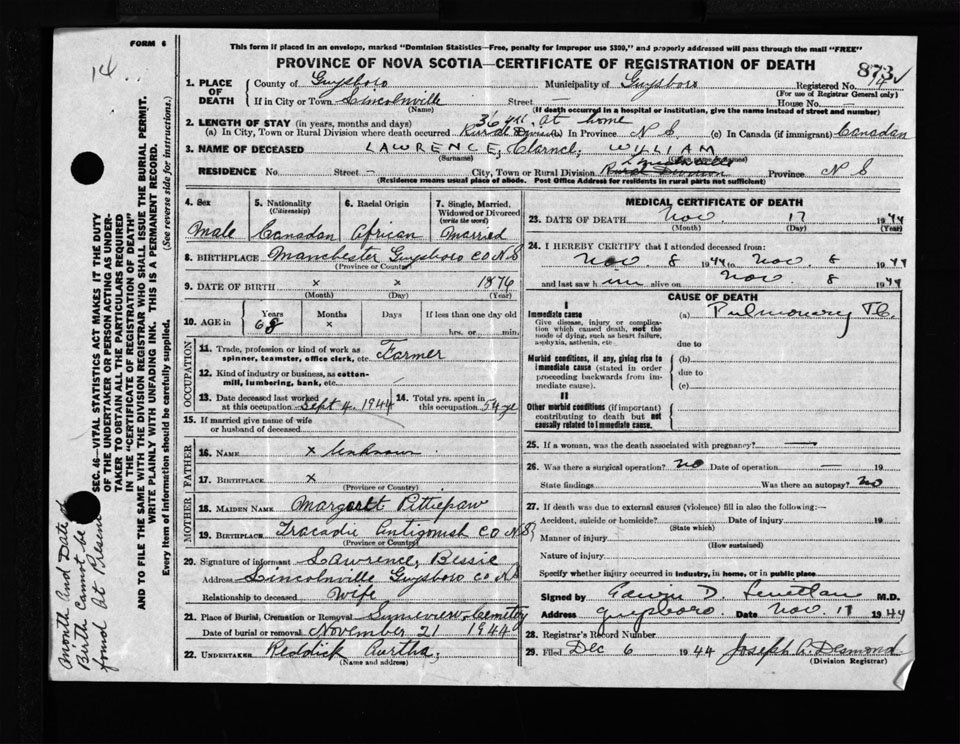 FORM 6
This form if placed in an envelope, marked "Dominion Statistics—Free, penalty for improper use $300," and properly addressed will pass through the mail "FREE"
14
PROVINCE OF NOVA SCOTIA—CERTIFICATE OF REGISTRATION OF DEATH
873
1. PLACE OF DEATH
County of Guysboro Municipality of Guysboro Registered No. 14
(For use of Registrar General only)
If in City or Town Lincolnville Street House No. —
(Name) (If death occurred in a hospital or institution, give the name instead of street and number)
2. LENGTH OF STAY (in years, months and days) 36 yrs. at home
(a) In City, Town or Rural Division where death occurred Rural Division (b) In Province N S (c) In Canada (if immigrant) Canadan
3. NAME OF DECEASED LAWRENCE, Clarnce, WYLLIAM
(Surname)
RESIDENCE No. Street — City, Town or Rural Division Province N S
(Residence means usual place of abode. Post Office Address for residents in rural parts not sufficient)
4. Sex
Male
5. Nationality
(Citizenship)
Canadan
6. Racial Origin
African
7. Single, Married, Widowed or Divorced
(write the word)
Married
8. BIRTHPLACE Manchester Guysboro CO N S
(Province or Country)
9. DATE OF BIRTH x x 1876
(Month) (Day) (Year)
10. AGE in Years Months Days If less than one day old
68 x hrs. or min.
OCCUPATION
11. Trade, profession or kind of work as spinner, teamster, office clerk, etc. Farmer
12. Kind of industry or business, as cotton-mill, lumbering, bank, etc.
13. Date deceased last worked at this occupation Sept 4, 1944
14. Total yrs. spent in this occupation 54 ye
15. If married give name of wife or husband of deceased
FATHER
16. NAME x Unknown
17. BIRTHPLACE x
(Province or Country)
MOTHER
18. MAIDEN NAME Margarlt Pittiepaw
19. BIRTHPLACE Tracadie Antigonish CO N S
(Province or Country)
20. Signature of informant Lawrence, Bessie
Address Lincolnville Guysboro CO N S
Relationship to deceased Wife
21. Place of Burial, Cremation or Removal Sunnieview Cemetry
Date of burial or removal November 21 1944
22. UNDERTAKER Reddick Aurtha,
(Name and address)
MEDICAL CERTIFICATE OF DEATH
23. DATE OF DEATH Nov 17 1944
(Month) (Day) (Year)
24. I HEREBY CERTIFY that I attended deceased from:
Nov. 8 1944 to Nov. 8 1944
and last saw him alive on Nov. 8 1944
CAUSE OF DEATH
I
Immediate cause (a) Pulmonary TB.
Give disease, injury or complication which caused death, not the mode of dying, such as heart failure, asphyxia, asthenia, etc.
due to
Morbid conditions, if any, giving rise to immediate cause (stated in order proceeding backwards from immediate cause).
(b)
due to
(c)
II
Other morbid conditions (if important) contributing to death but not causally related to immediate cause.
25. If a woman, was the death associated with pregnancy? —
26. Was there a surgical operation? no Date of operation — 19
State findings Was there an autopsy? no
27. If death was due to external causes (violence) fill in also the following:—
Accident, suicide or homicide? Date of injury 19
(State which)
Manner of injury
(How sustained)
Nature of injury
Specify whether injury occurred in industry, in home, or in public place
Signed by Edwin D M.D.
Address Guysboro. Date Nov. 1944
28. Registrar's Record Number
29. Filed Dec 6 1944 Joseph A. Desmond
(Division Registrar)
SEC. 46—VITAL STATISTICS ACT MAKES IT THE DUTY
OF THE UNDERTAKER OR PERSON ACTING AS UNDERTAKER TO OBTAIN ALL THE PARTICULARS REQUIRED
IN THE "CERTIFICATE OF REGISTRATION OF DEATH"
AND TO FILE THE SAME WITH THE DIVISION REGISTRAR WHO SHALL ISSUE THE BURIAL PERMIT.
WRITE PLAINLY WITH UNFADING INK. THIS IS A PERMANENT RECORD.
Every item of information should be carefully supplied. (See reverse side for instructions.)
Month And Date of
Birth Cannot be
found At Presene